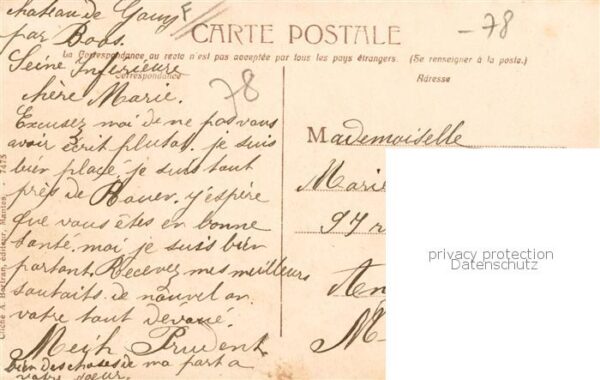 château de Gouy
par Boos.
Seine Inférieure
chère Marie.
Excusez moi de ne pas vous
avoir écrit plutot. je suis
bien placé, je suis tout
près de Rouen. j'éspère
que vous êtes en bonne
santé. moi je suis bien
portant. Recevez mes meilleurs
souhaits de nouvel an
votre tout dévoué.
Prudent
bien des choses de ma part a
votre sœur.
CARTE POSTALE
La Correspondance au recto n'est pas acceptée par tous les pays étrangers. (Se renseigner à la poste.)
Correspondance
Adresse
78
-78
Mademoiselle
Marie
97 r
M
privacy protection
Datenschutz
Cliché A. Bertran, éditeur, Mantes. - 7475